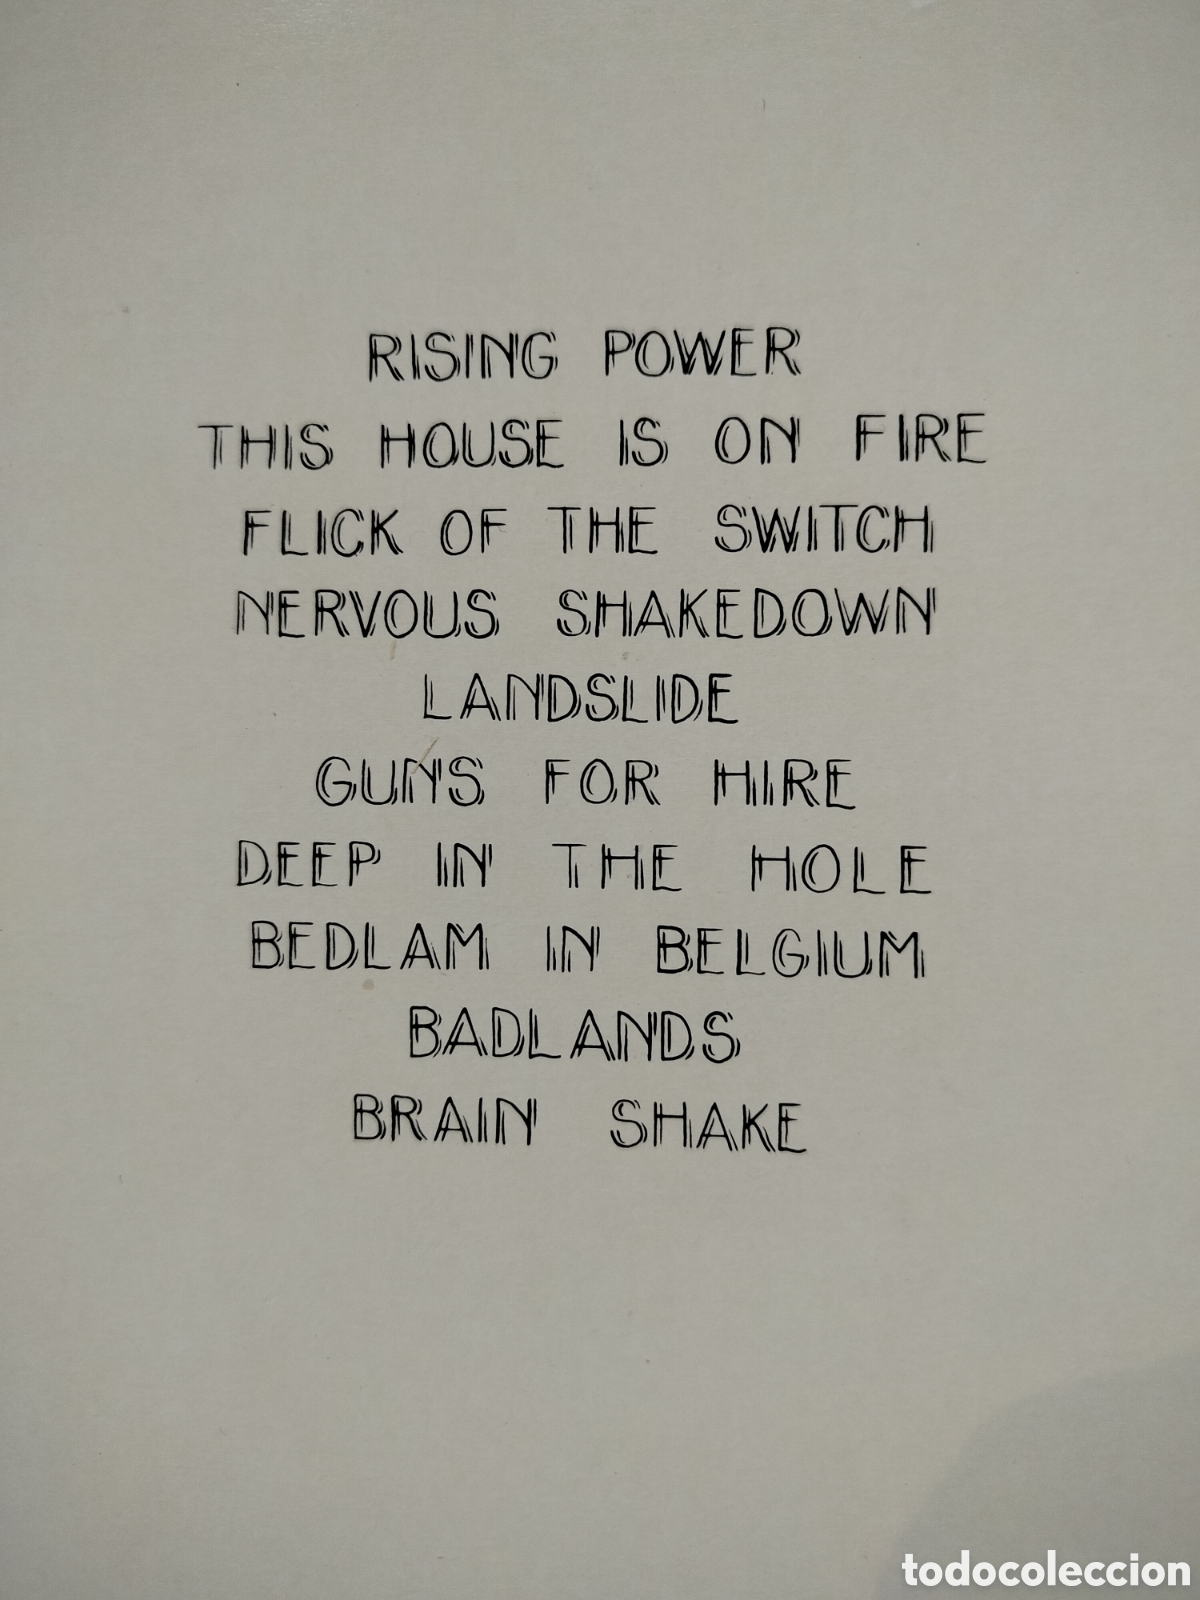 RISING POWER
THIS HOUSE IS ON FIRE
FLICK OF THE SWITCH
NERVOUS SHAKEDOWN
LANDSLIDE
GUNS FOR HIRE
DEEP IN THE HOLE
BEDLAM IN BELGIUM
BADLANDS
BRAIN SHAKE
todocoleccion